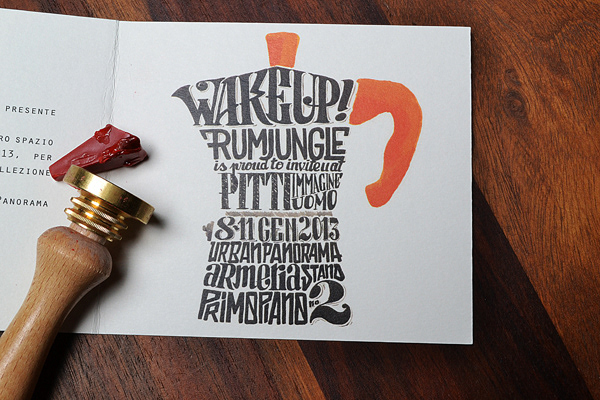 PRESENTE
RO SPAZIO
13, PER
LLEZIONE
PANORAMA
WAKEUP!
RUMJUNGLE
is proud to invite u at
PITTI IMMAGINE UOMO
8-11 GEN 2013
URBANPANORAMA
armeria STAND
PRIMOPIANO no 2